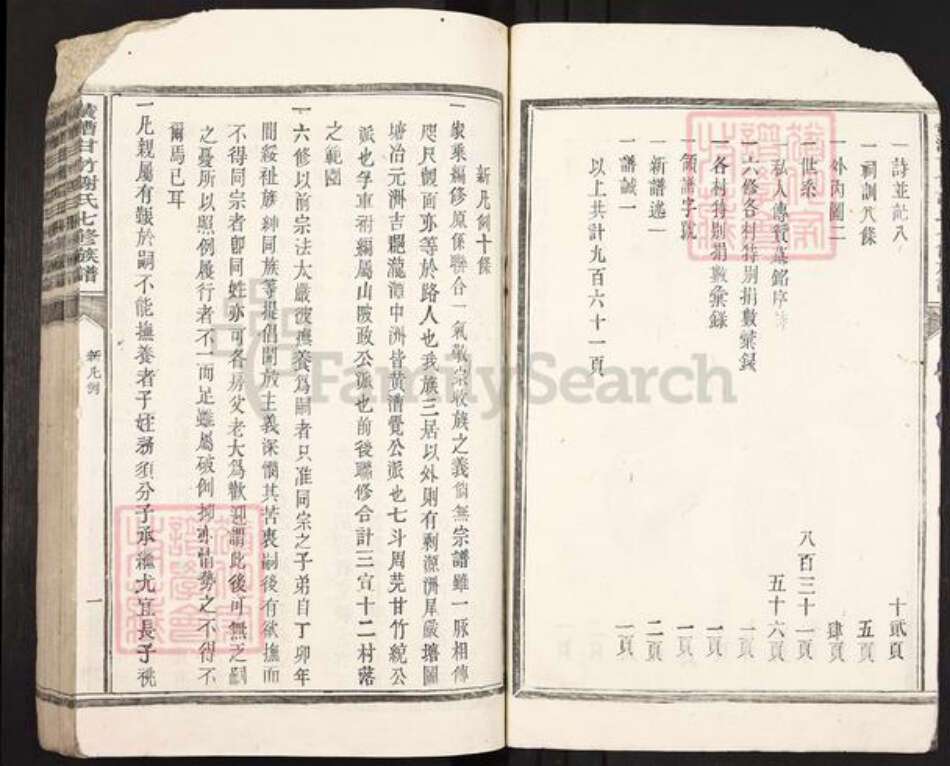 一詩並記八 十貳頁
一祠訓八條 五頁
一外內圖二 肆頁
一世系 八百三十一頁
私人傳贊墓銘序 五十六頁
一六修各村特別捐數彙録 一頁
一各村特別捐數彙錄 一頁
一領譜字號 一頁
一新譜述一 二頁
一譜誡一 一頁
以上共計九百六十一頁
新凡例十條
一家乘編修原係聯合一氣敬宗收族之義倘無宗譜雖一脉相傳
咫尺覿面亦等於路人也我族三居以外則有剩源洲犀嚴塘圖
塘冶元洲吉 瀧漳中洲皆黄漕覺公派也七斗周芫甘竹統公
派也孚車 屬山陂政公派也前後聯修合計三宣十二村落
之範圍
一六修以前宗法太嚴彼撫養爲嗣者只准同宗之子弟自丁卯年
間綏祉族紳同族等提倡開放主義深憫其苦喪嗣後有欲撫而
不得同宗者卽同姓亦可各房父老大爲歡迎謂此後可無乏嗣
之憂所以照例履行者不一而足雖屬破例抑亦謂勢之不得不
爾焉已耳
一凡親屬有艱於嗣不能撫養者子姪務須分子承繼尤宜長子祧
黄漕甘竹謝氏七修族譜
新凡例
一
FamilySearch